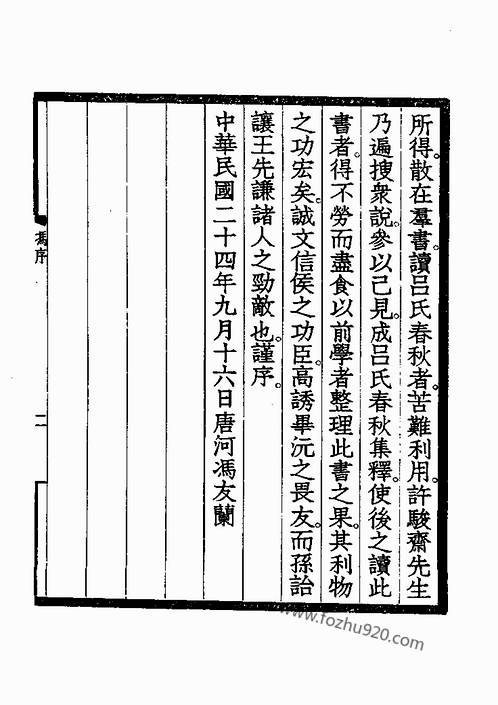 所得。散在羣書。讀呂氏春秋者。苦難利用。許駿齋先生
乃遍搜衆說。參以己見。成呂氏春秋集釋。使後之讀此
書者。得不勞而盡食以前學者整理此書之果。其利物
之功宏矣。誠文信侯之功臣。高誘畢沅之畏友。而孫詒
讓王先謙諸人之勁敵也。謹序。
中華民國二十四年九月十六日唐河馮友蘭
馮序
二
www.fozhu920.com